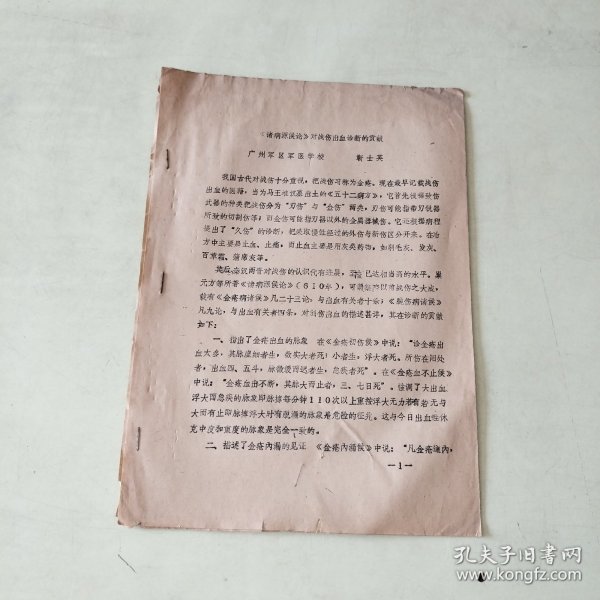 《诸病源候论》对战伤出血诊断的贡献
广州军区军医学校 靳士英
我国古代对战伤十分重视，把战伤习称为金疮。现在最早记载战伤
出血的医籍，当为马王堆汉墓出土的《五十二病方》，它首先根据致伤
武器的种类把战伤分为“刃伤”与“金伤”两类，刃伤可能指带刃锐器
所致的切割伤等，而金伤可能指刃器以外的金属器械伤。它还根据病程
提出了“久伤”的诊断，把采取慢性经过的外伤与新伤区分开来。在治
方中主要是止血、止痛，而止血主要是用灰类药物，如羽毛灰、发灰、
百草霜、蒲席灰等。
其后秦汉两晋对战伤的认识代有进展，至隋已达相当高的水平。巢
元方等所著《诸病源候论》（610年），可谓继隋以前战伤之大成，
载有《金疮病诸候》凡二十三论，与出血有关者十条，《腕伤病诸候》
凡九论，与出血有关者四条，对创伤出血的描述甚详，其在诊断的贡献
如下：
一、指出了金疮出血的脉象 在《金疮初伤候》中说：“诊金疮出
血太多，其脉虚细者生，数实大者死；小者生，浮大者死。所伤在阳处
者，出血四、五斗，脉微缓而迟者生，急疾者死”。在《金疮血不止候》
中说：“金疮血出不断，其脉大而止者，三、七日死”。强调了大出血
浮大而急疾的脉象即脉搏每分钟110次以上重按浮大无力若有若无与
大而有止即脉搏浮大时有脱漏的脉象是危险的征兆。这与今日出血性休
克中度和重度的脉象是完全一致的。
二、描述了金疮内漏的见证 《金疮内漏候》中说：“凡金疮通内，
—1—
孔夫子旧书网
www.kongfz.com